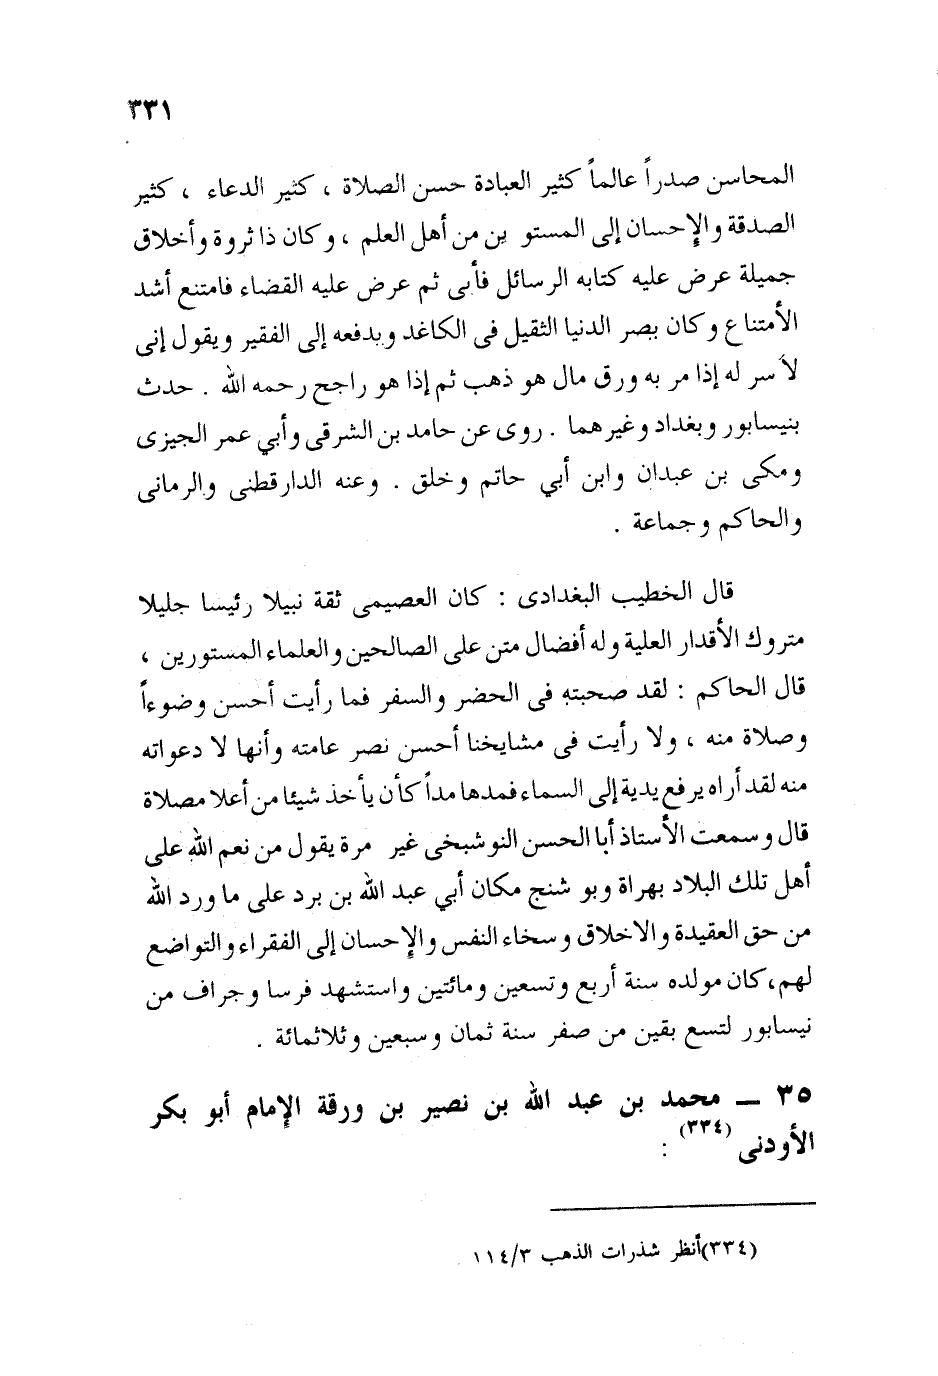 ٣٣١
المحاسن صدراً عالماً كثير العبادة حسن الصلاة ، كثير الدعاء ، كثير
الصدقة والإحسان إلى المستو ين من أهل العلم ، وكان ذا ثروة وأخلاق
جميلة عرض عليه كتابه الرسائل فأبى ثم عرض عليه القضاء فامتنع أشد
الأمتناع وكان بصر الدنيا الثقيل فى الكاغد وبدفعه إلى الفقير ويقول إنى
لأسر له إذا مر به ورق مال هو ذهب ثم إذا هو راجح رحمه الله . حدث
بنيسابور وبغداد وغيرهما . روى عن حامد بن الشرقى وأبي عمر الجيزى
ومكى بن عبدان وابن أبي حاتم وخلق . وعنه الدارقطنى والرمانى
والحاكم وجماعة .
قال الخطيب البغدادى : كان العصيمى ثقة نبيلا رئيسا جليلا
متروك الأقدار العلية وله أفضال متن على الصالحين والعلماء المستورين ،
قال الحاكم : لقد صحبته فى الحضر والسفر فما رأيت أحسن وضوءاً
وصلاة منه ، ولا رأيت فى مشايخنا أحسن نصر عامته وأنها لا دعواته
منه لقد أراه يرفع يدية إلى السماء فمدها مداً كأن يأخذ شيئا من أعلا مصلاة
قال وسمعت الأستاذ أبا الحسن النوشبخى غير مرة يقول من نعم الله على
أهل تلك البلاد بهراة وبو شنج مكان أبي عبد الله بن برد على ما ورد الله
من حق العقيدة والاخلاق وسخاء النفس والإحسان إلى الفقراء والتواضع
لهم، كان مولده سنة أربع وتسعين ومائتين واستشهد فرسا وجراف من
نيسابور لتسع بقين من صفر سنة ثمان وسبعين وثلاثمائة .
٣٥ ــ محمد بن عبد الله بن نصير بن ورقة الإمام أبو بكر
الأودنى (٣٣٤) :
(٣٣٤)أنظر شذرات الذهب ١١٤/٣ .